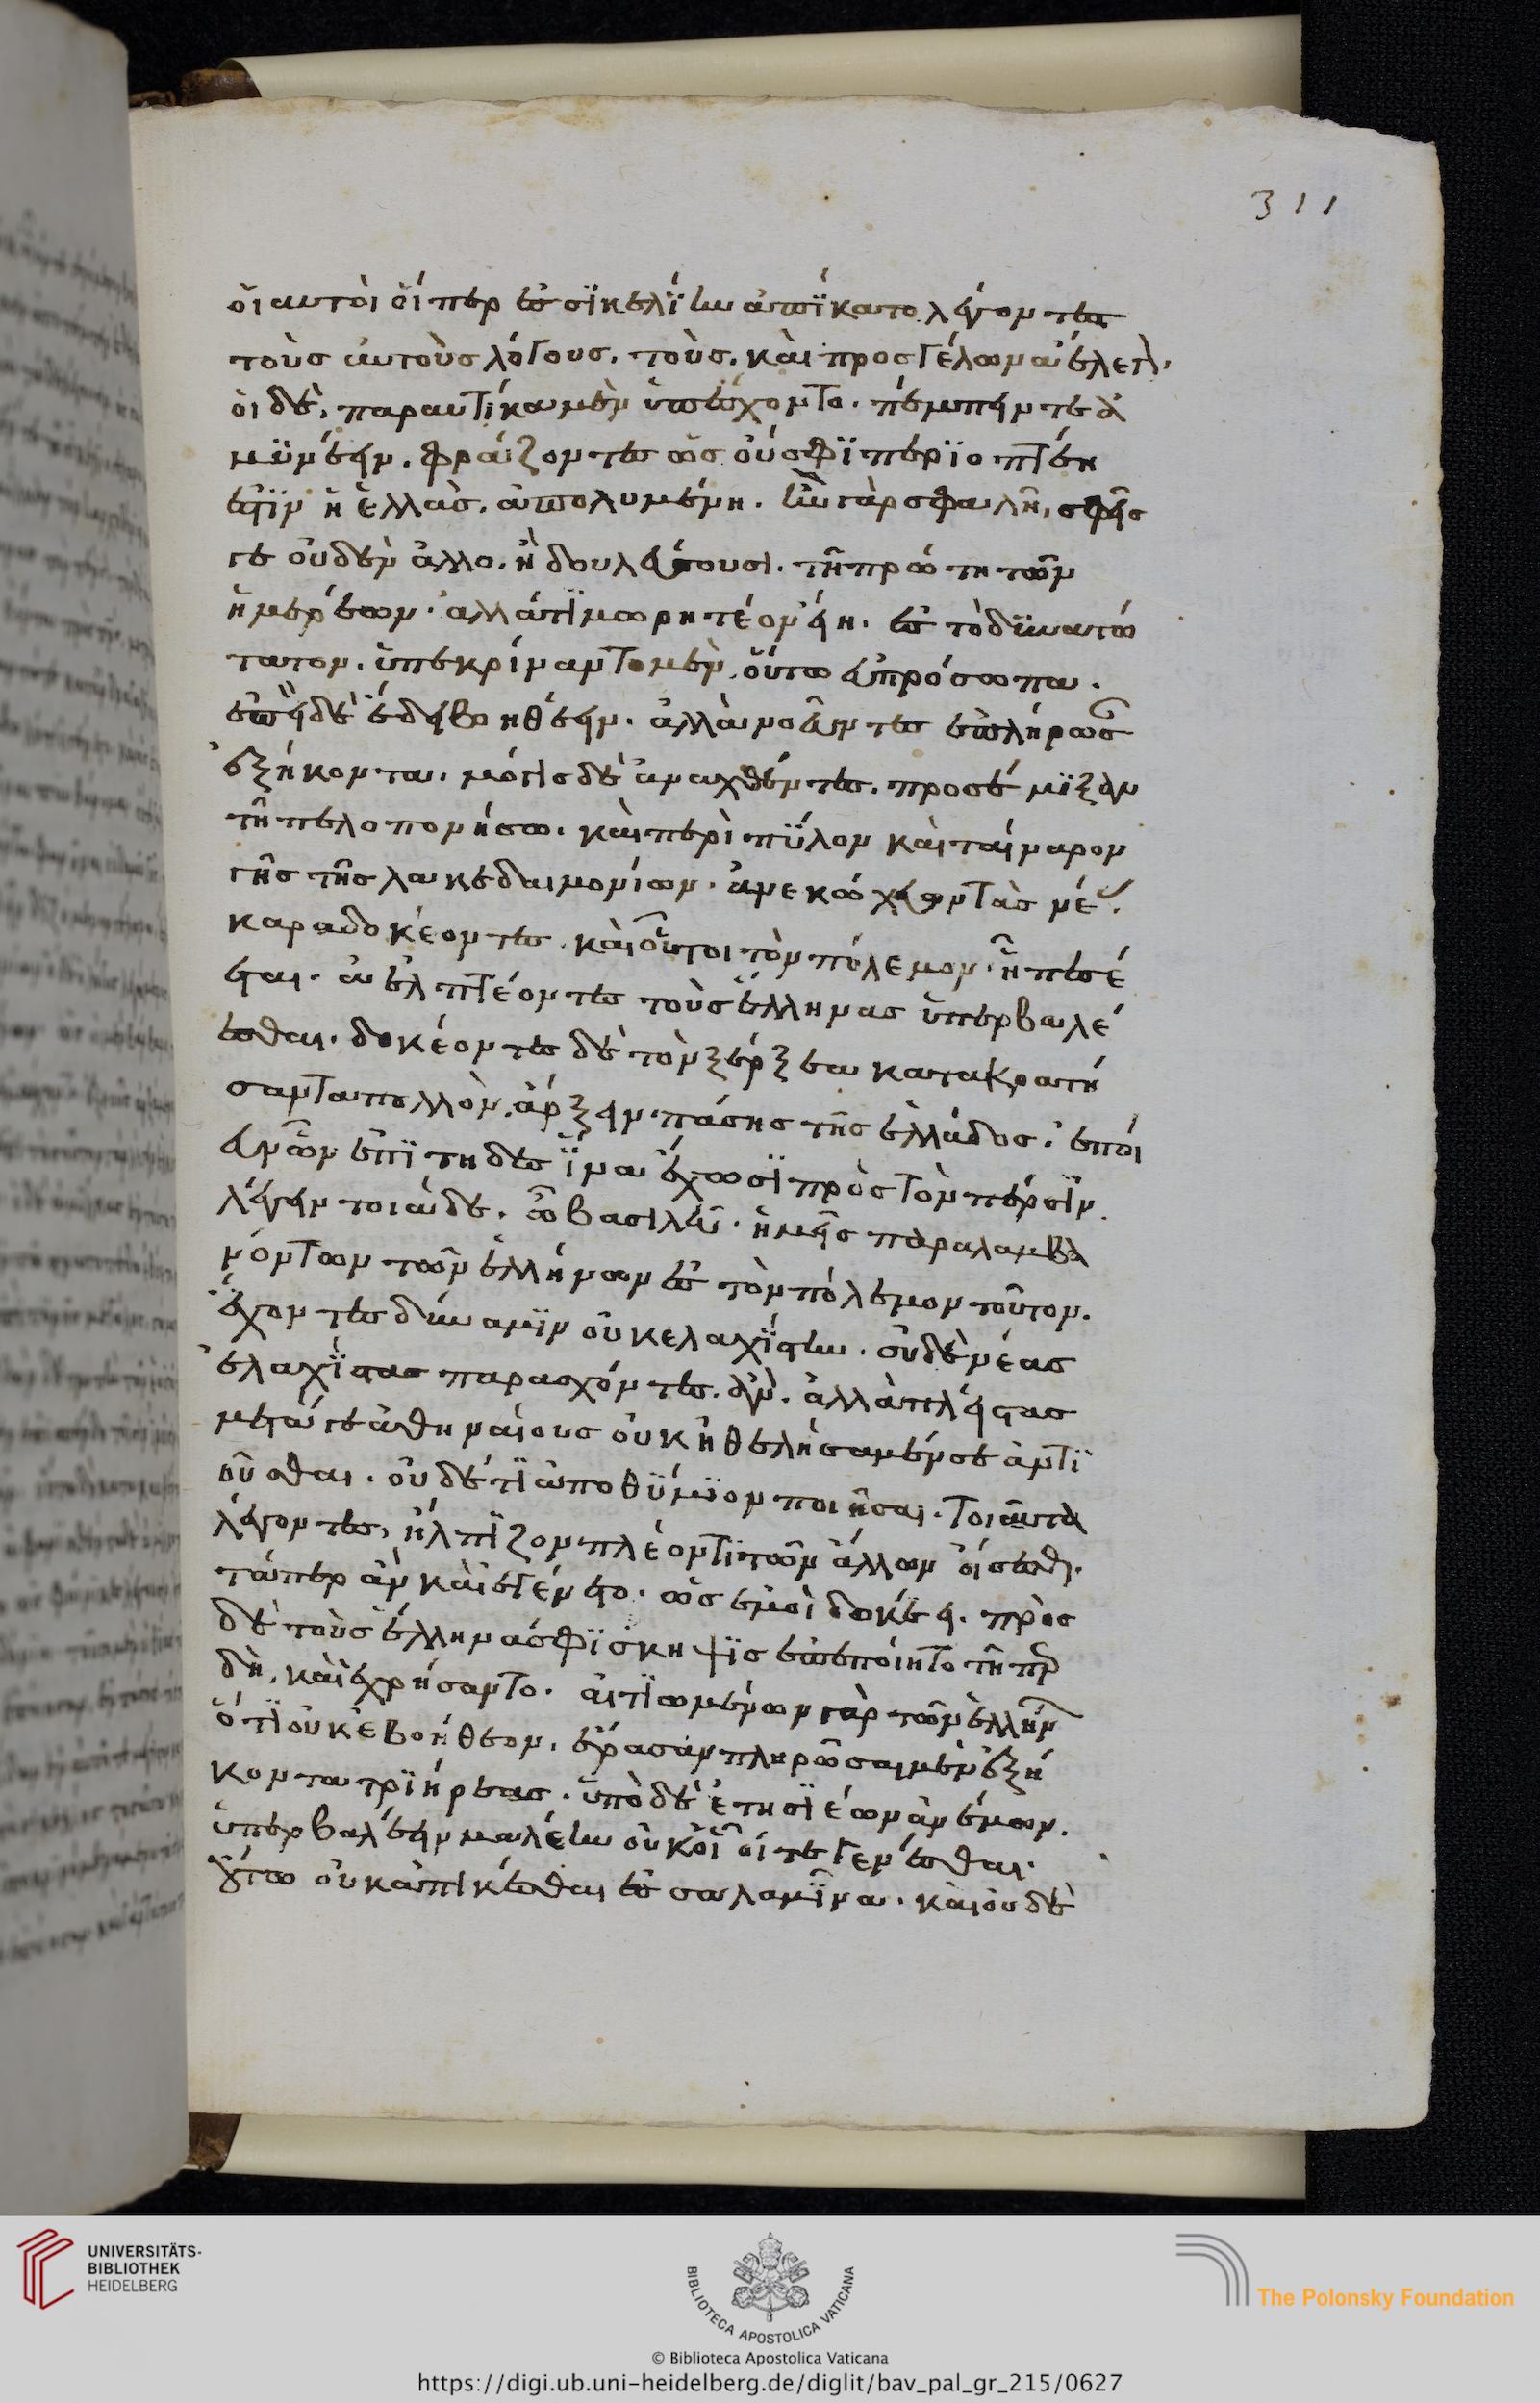 311
οἱ αὐτοὶ οἵπερ ἐς σϊκελΐην ἀπΐκατο λέγοντες
τοὺς αὐτοὺς λόγους. τοὺς. καὶ προς γέλωνα ἔλεγον.
οἱ δὲ, παραυτίκα μὲν ὑπέσχοντο. πέμπειν τε κ
μϋνέειν. φράζοντες ὡς οὔ σφϊ περϊοπτέη
ἐστΐν ἡ ἑλλὰς. ἀπολυμένη. ἢν γὰρ σφαλῆ, σφεῖς
γε οὐδὲν ἄλλο. ἢ δουλεύσουσι. τῆ πρώτη τῶν
ἡμερέων. ἀλλὰ τϊμωρητέον εἴη. ἐς τὸ δϋνατώ
τατον. ὑπεκρίναντο μὲν οὕτω εὐπρόσωπα.
ἐπεὶ δὲ ἔδει βοηθέειν. ἄλλα νοεῦντες ἐπλήρωσ
ἑξήκοντα. μόγις δὲ ἀναχθέντες. προσέμϊξαν
τῆ πελοπονήσω. καὶ περὶ πΰλον καὶ ταίναρον
γῆς τῆς λακεδαιμονίων. ἀνεκώχευον τὰς νέας.
καραδοκέοντες. καὶ οὗτοι τὸν πόλεμον. ἧ πεσέ
εται. ἀελπτέοντες τοὺς ἕλληνας ὑπερβαλέ
εσθαι. δοκέοντες δὲ τὸν ξέρξεα κατακρατή
σαντα πολλὸν. ἄρξειν πάσης τῆς ἑλλάδος. ἐποί
ευν ὦν ἐπΐτηδες ἵνα ἔχωσϊ πρὸς τὸν πέρσϊν.
λέγειν τοιάδε. ὦ βασιλεῦ. ἡμεῖς παραλαμβα
νόντων τῶν ἑλλήνων ἐς τὸν πόλεμον τοῦτον.
ἔχοντες δύναμϊν οὐκ ἐλαχΐστην. οὐδὲ νέας
ἐλαχΐστας παρασχόντες. ἂν. ἀλλὰ πλείστας
μετά γε ἀθηναίους οὐκ ἠθελήσαμέν σε ἀντϊ
οῦσθαι. οὐδέ τϊ ἀποθΰμϊον ποιῆσαι. τοιαῦτα
λέγοντες, ἤλπϊζον πλέον τϊ τῶν ἄλλων οἴσεσθ.
τάπερ ἂν καὶ ἐγένετο. ὡς ἐμοὶ δοκέει. πρὸς
δὲ τοὺς ἕλληνάς σφϊ σκῆψϊς ἐπεποίητο τῆ πρ
δὴ, καὶ ἐχρήσαντο. αἰτϊωμένων γὰρ τῶν ἑλλήν
ὅτϊ οὐκ ἐβοήθεον. ἔφασαν πληρῶσαι μὲν ἑξή
κοντα τρϊήρεας. ὑπὸ δὲ ἐτησϊέων ἀνέμων.
ὑπερβαλέειν μαλέην οὐκ οἷοί τε γενέσθαι.
οὕτω οὐκ ἀπικέσθαι ἐς σαλαμῖνα. καὶ οὐδὲ
UNIVERSITÄTS-
BIBLIOTHEK
HEIDELBERG
BIBLIOTECA APOSTOLICA VATICANA
The Polonsky Foundation
© Biblioteca Apostolica Vaticana
https://digi.ub.uni-heidelberg.de/diglit/bav_pal_gr_215/0627